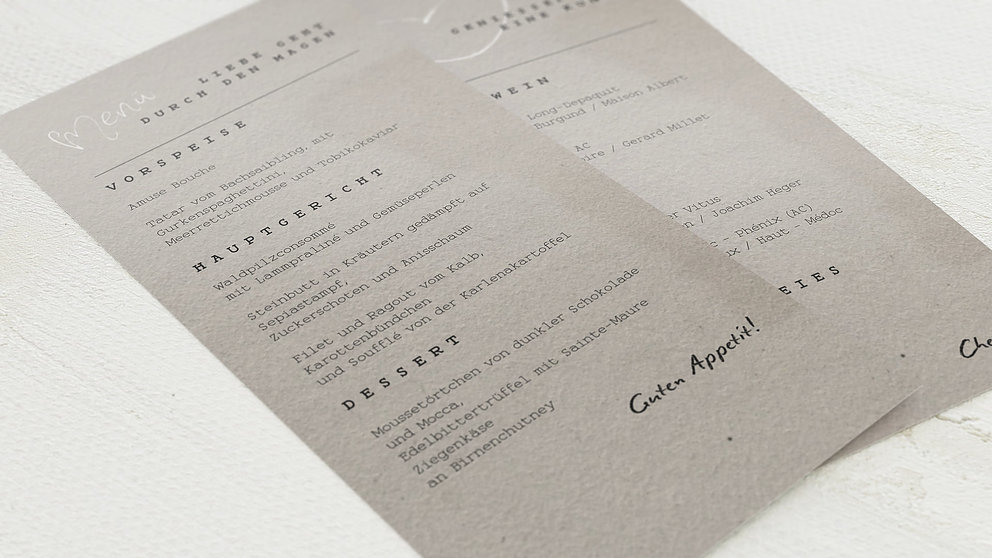 Menü
LIEBE GEHT
DURCH DEN MAGEN
VORSPEISE
Amuse Bouche
Tatar vom Bachsaibling, mit
Gurkenspaghettini,
Meerrettichmousse und Tobikokaviar
HAUPTGERICHT
Waldpilzconsommé
mit Lammpraliné und Gemüseperlen
Steinbutt in Kräutern gedämpft auf
Sepiastampf,
Zuckerschoten und Anisschaum
Filet und Ragout vom Kalb,
Karottenbündchen
und Soufflé von der Karlenakartoffel
DESSERT
Moussetörtchen von dunkler Schokolade
und Mocca,
Edelbittertrüffel mit Sainte-Maure
Ziegenkäse
an Birnenchutney
Guten Appetit!
EINE KUN
WEIN
Long-Depaquit
Burgund / Maison Albert
AC
ire / Gerard Millet
er Vitus
n / Joachim Heger
c - Phénix (AC)
ix / Haut - Médoc
EIES
Che